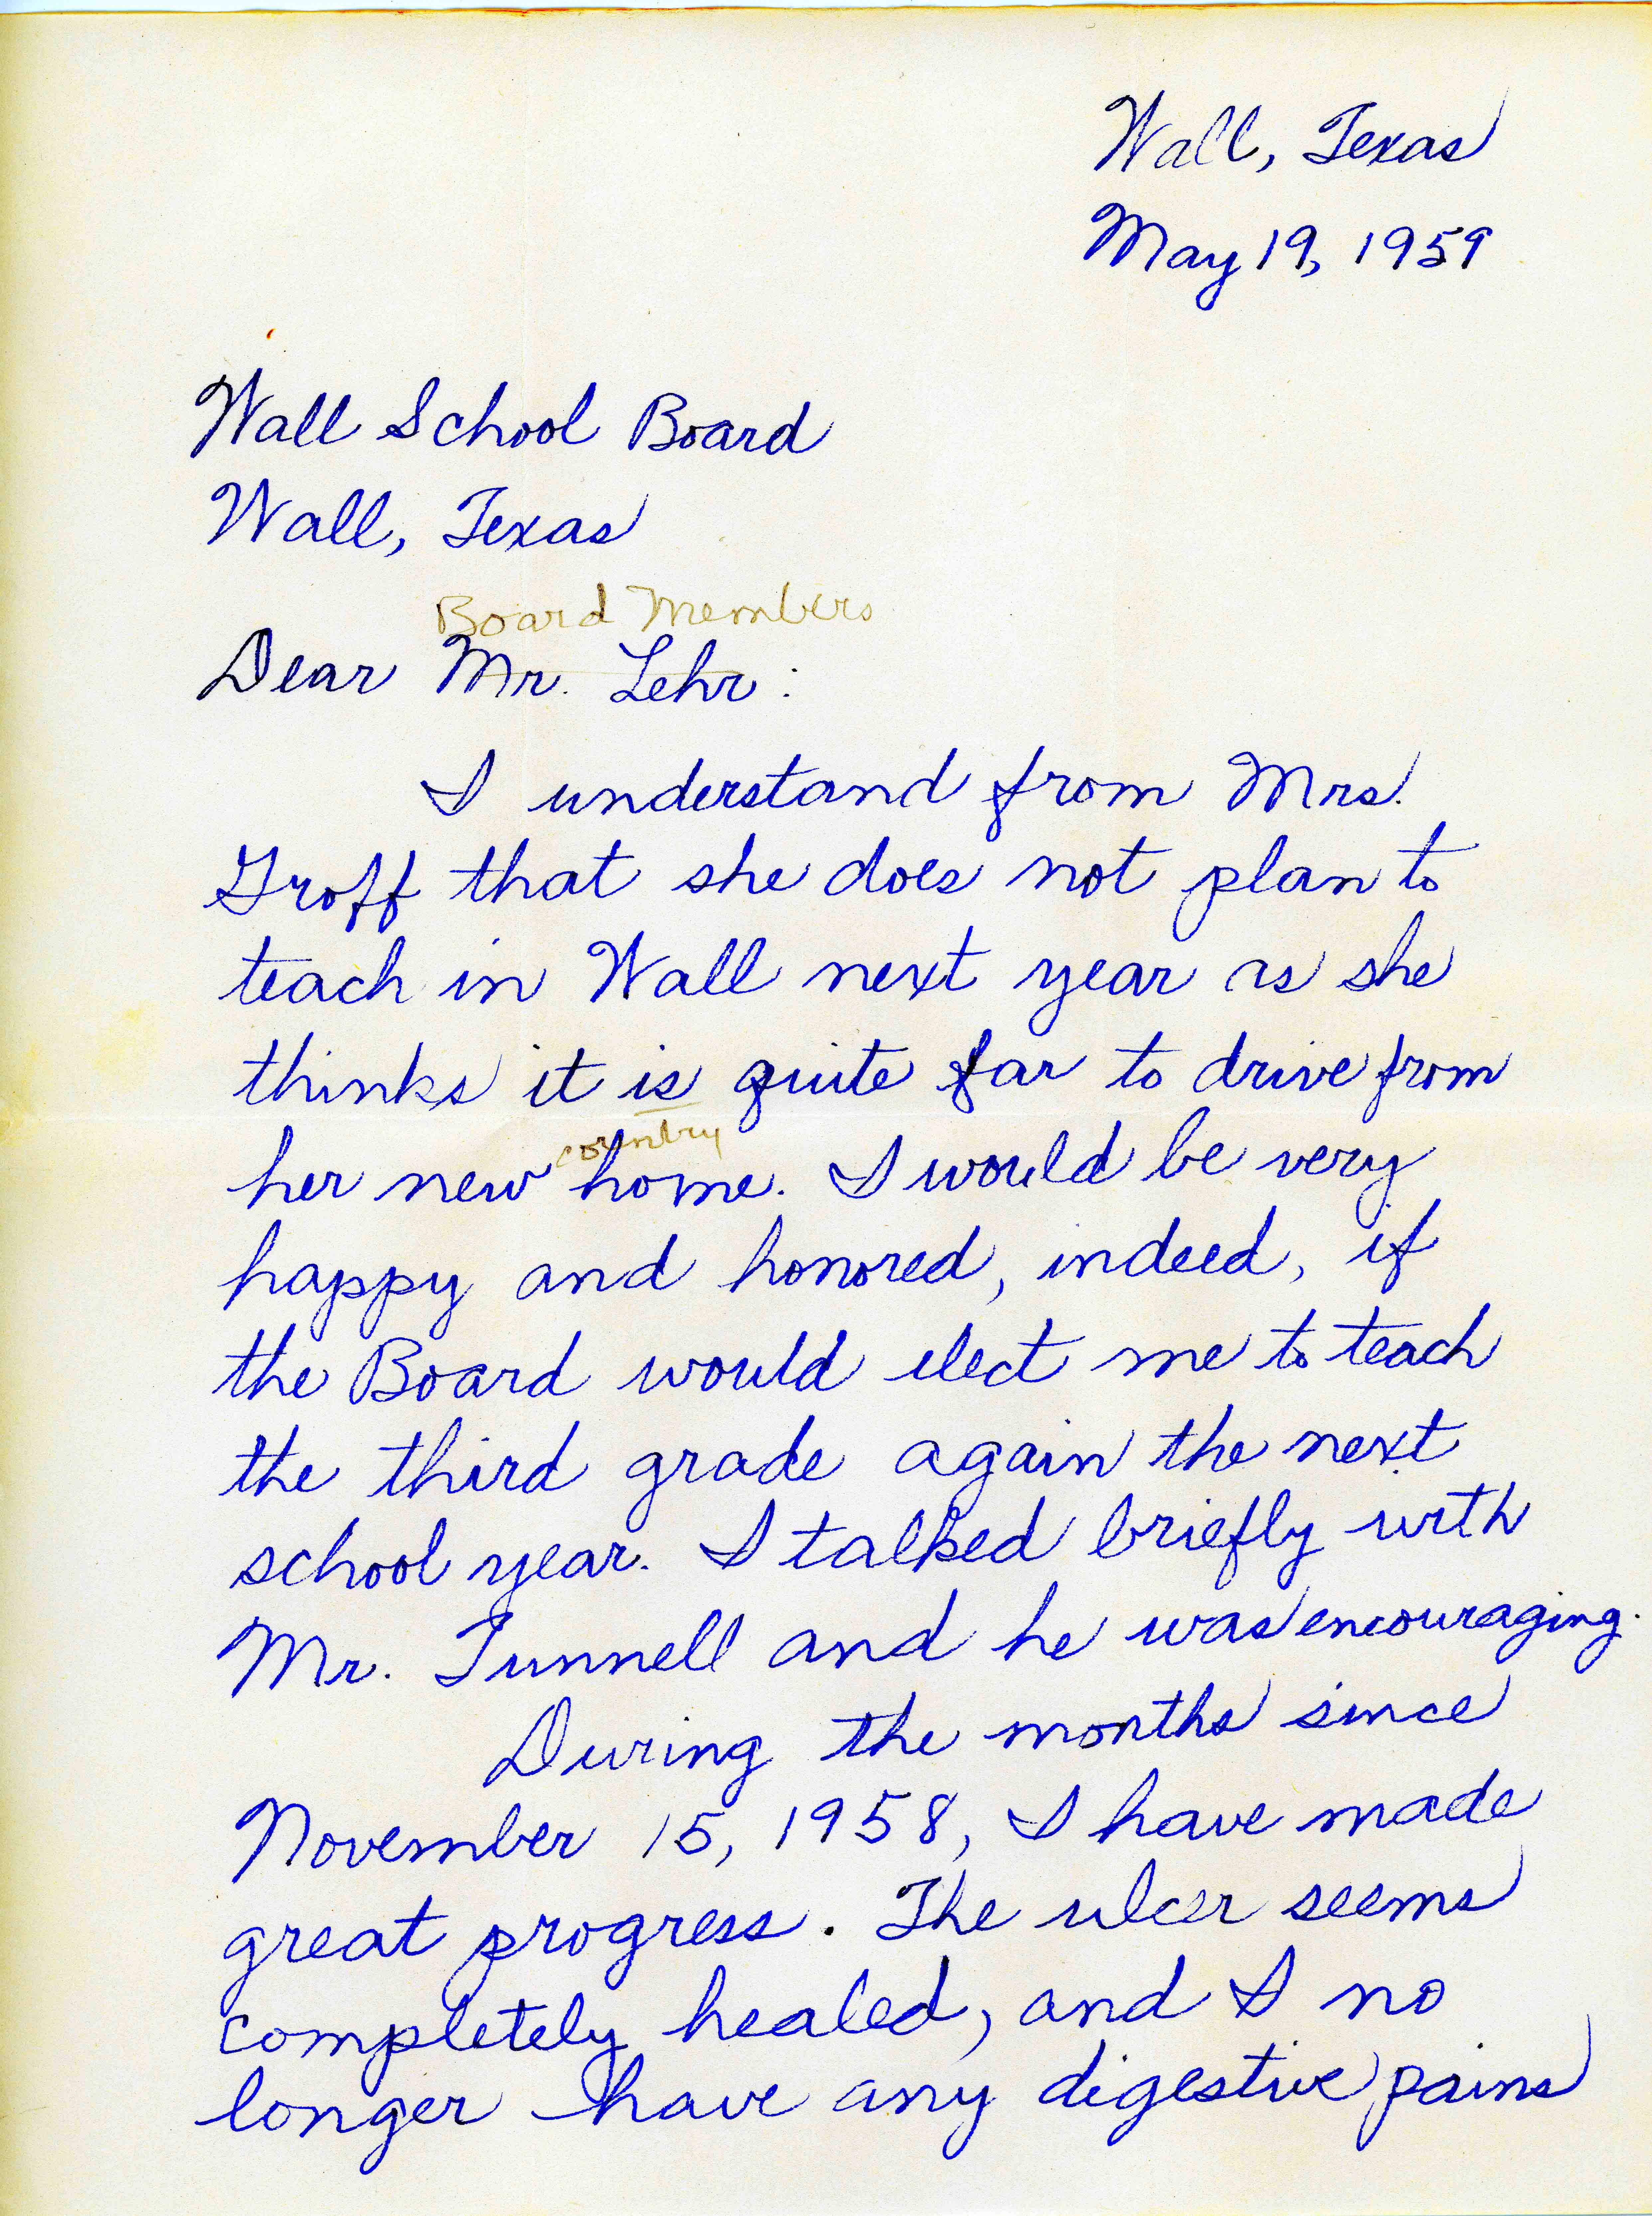 Wall, Texas
May 19, 1959
Wall School Board
Wall, Texas
Board Members
Dear Mr. Lehr:
I understand from Mrs.
Groff that she does not plan to
teach in Wall next year as she
thinks it is quite far to drive from
country
her new home. I would be very
happy and honored, indeed, if
the Board would elect me to teach
the third grade again the next
school year. I talked briefly with
Mr. Tunnell and he was encouraging.
During the months since
November 15, 1958, I have made
great progress. The ulcer seems
completely healed, and I no
longer have any digestive pains